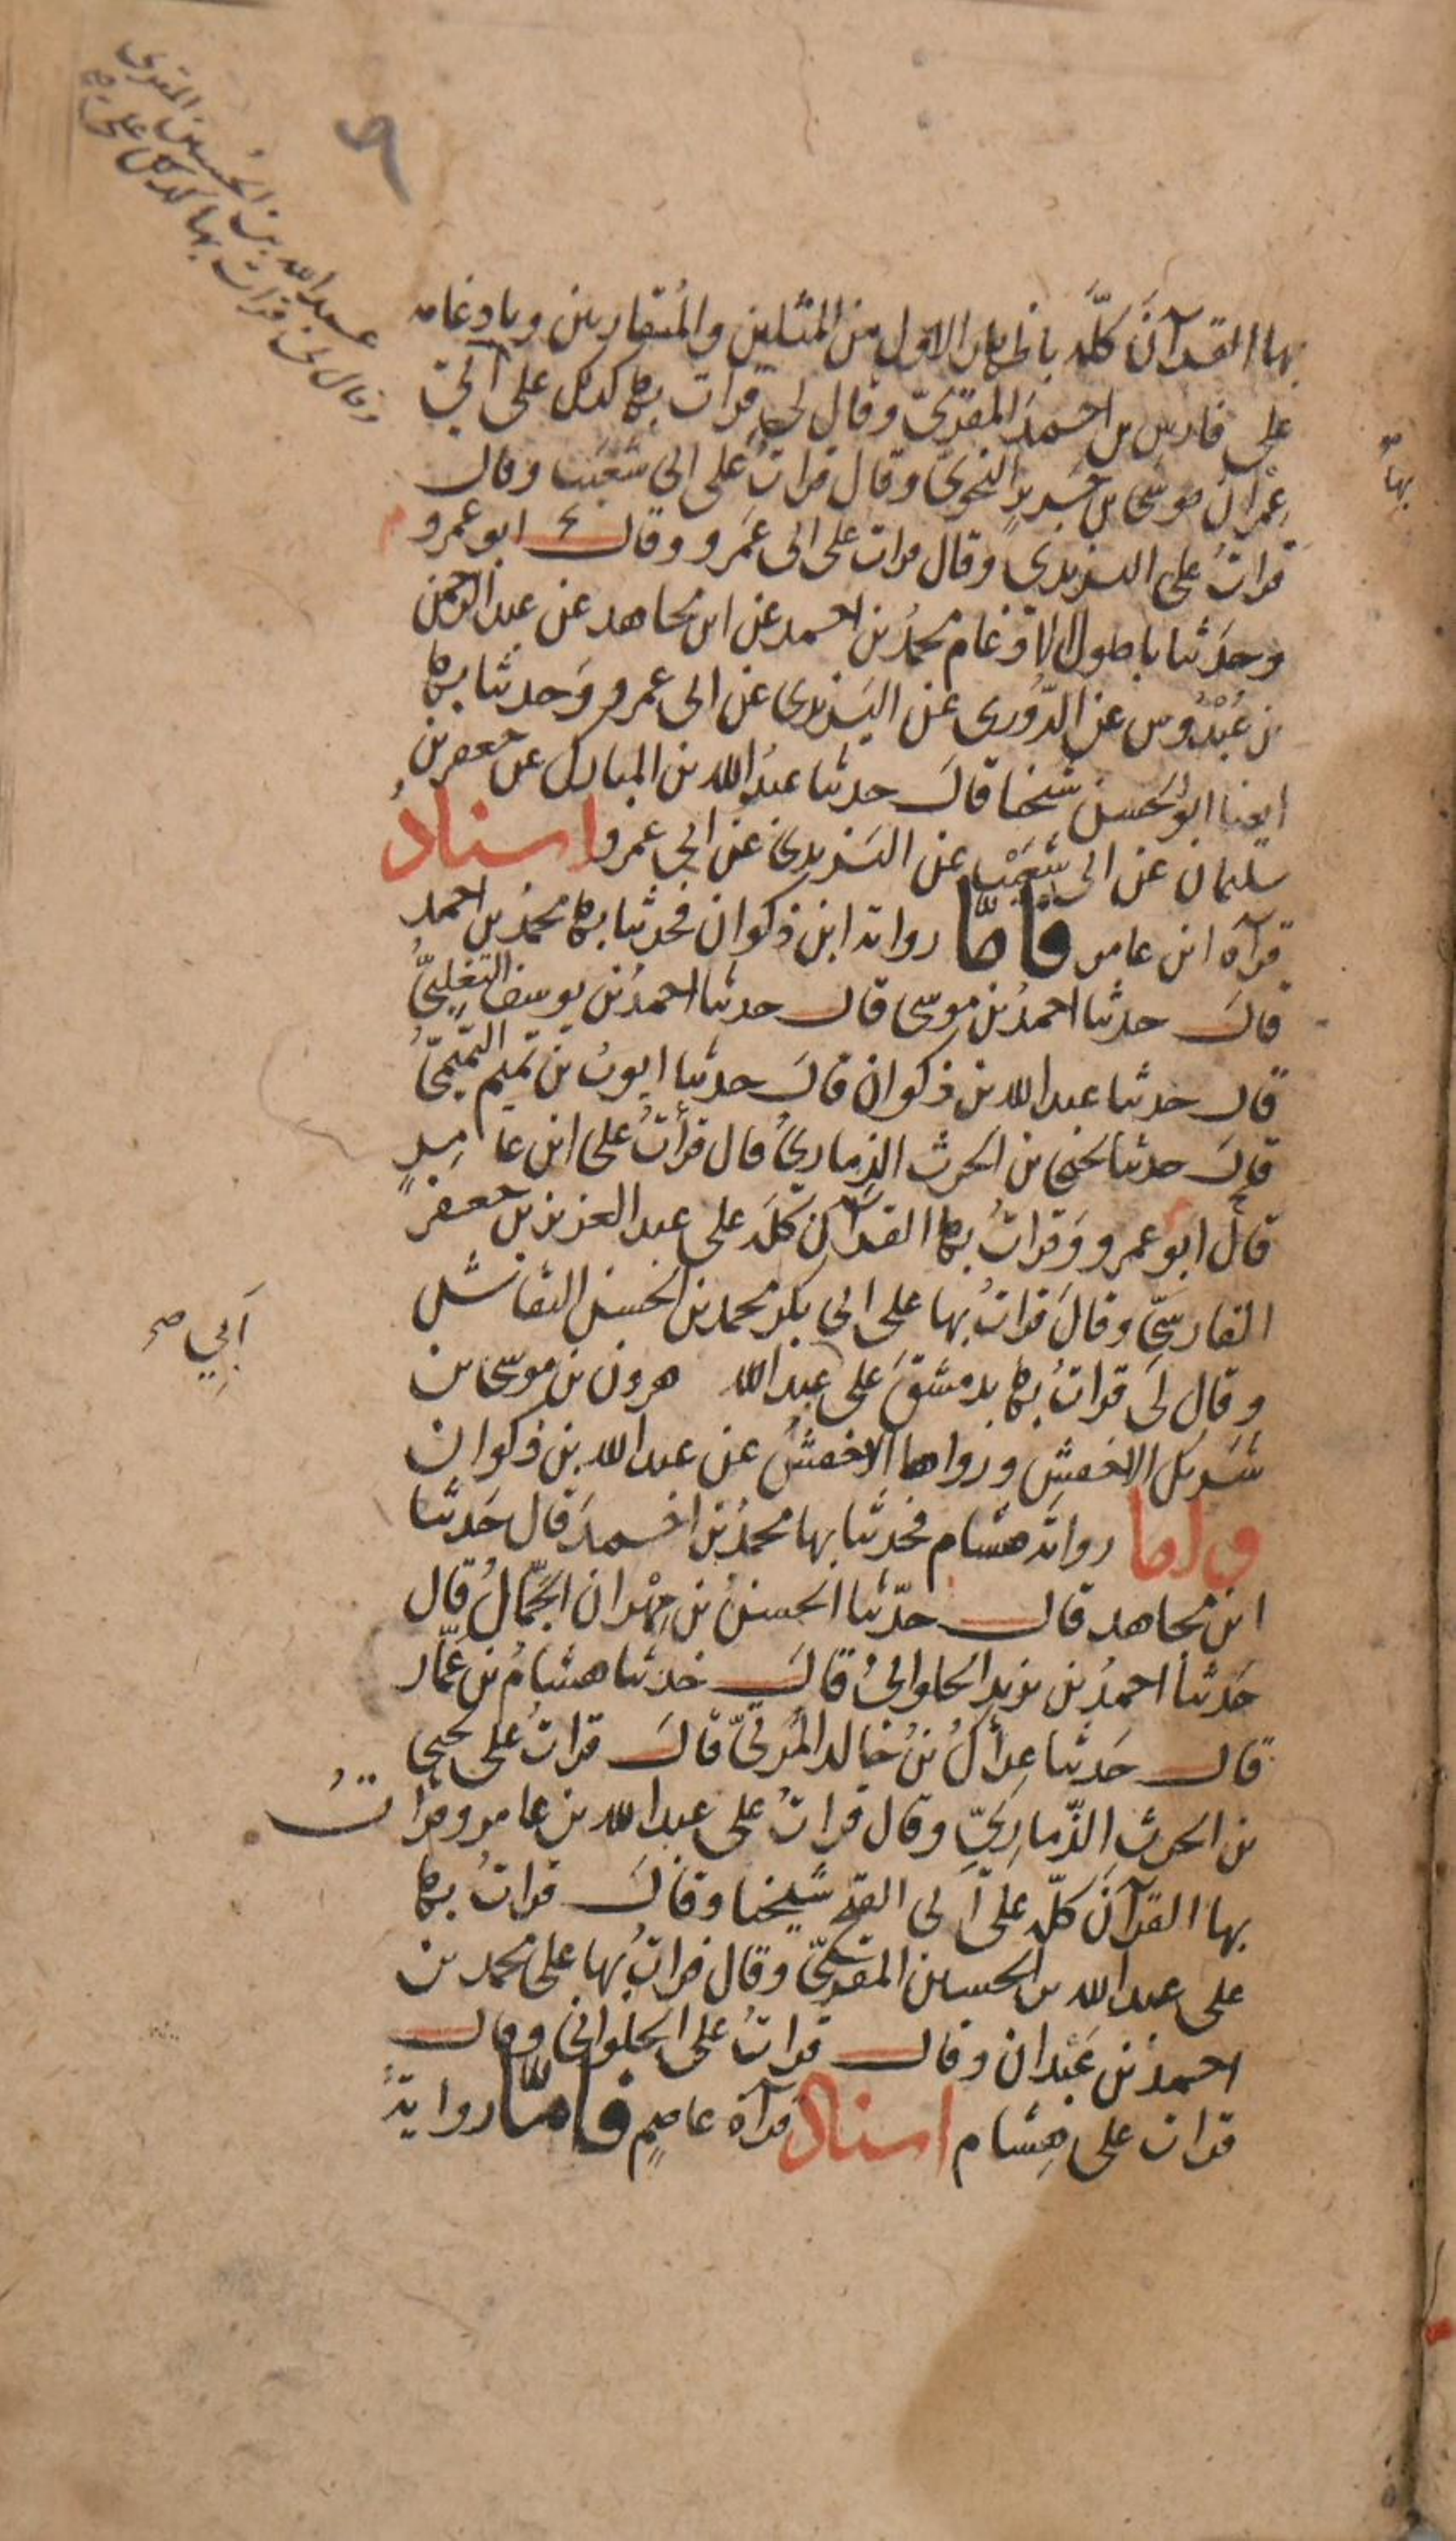 ٩
عبد الله بن الحسين المقرى
وقال لى قرات بها كذلك على
بها القرآن كلَّه باظهار الاول من المثلين والمُتقاربين وبادغامه
على فارس بن احمدَ المقرئ وقال لى قرات بها كذلك على ابى
بها
عِمْرانَ موسَى بن جَرِيرٍ النحوىّ وقال قراتُ على ابى شعَيب وقال
قراتُ على اليزيدى وقال قرات على ابى عَمرو وقال ابو عمرو
وحدَثنا باصول الادغام محمدُ بن احمد عن ابن مجاهد عن عبد الرحمن
بن عُبْدُوس عن الدُّورى عن اليَزيدى عن ابى عمرو وَحدثنا بها
ايضا ابو الحسن شيخنا قالَ حدثنا عبدُ الله بن المبارك عن جعفر بن
سليمان عن ابى شُعَيْب عن اليَزيدىّ عن ابى عمرو اسنادُ
قرآة ابن عامر فامّا رواية ابن ذكوان فحدثنا بها محمد بن احمد
قالَ حدثنا احمدُ بن موسى قال حدثنا احمدُ بن يوسف التغلبىُّ
قال حدثنا عبد الله بن ذكوان قالَ حدثنا ايوبُ بن تميم التميمىُّ
قالَ حدثنا يحيى بن الحرث الذِمارىُّ قال قرأتُ على ابن عامِرٍ
قال ابو عمرو وَقراتُ بها القرآن كلَّه على عبد العزيز بن جعفرٍ
الفارسىِّ وقالَ قراتُ بها على ابى بكر محمد بن الحسن النقاش
وقال لى قراتُ بها بدمشقَ على عبد الله هرون بن موسى بن
أَبِي صح
شَرِيك الاخفش ورواها الاخفشُ عن عبد الله بن ذكوان
واما رواية هشام فحدثنا بها محمدُ بن احمدَ قال حَدثنا
ابن مجاهد قال حدّثنا الحسنُ بن مِهْران الجَمّالُ قال
حَدثنا احمدُ بن يزيد الحلوانىُ قالَ حدثنا هشامُ بن عَمّار
قال حَدثنا عِراكُ بنُ خالد المُرّىّ قالَ قراتُ على يحيى
بن الحرث الذّمارِىِّ وقال قراتُ على عبد الله بن عامر وقراتُ
بها القرآنَ كلّه على أبى الفتح شيخنا وقالَ قراتُ بها
على عبد الله بن الحسين المقرئ وقال قراتُ بها على محمد بن
احمدَ بن عَبْدان وقال قراتُ على الحلوانى وقال
قرات على هِشام اسنادُ قرآة عاصمٍ فامّا روايةُ